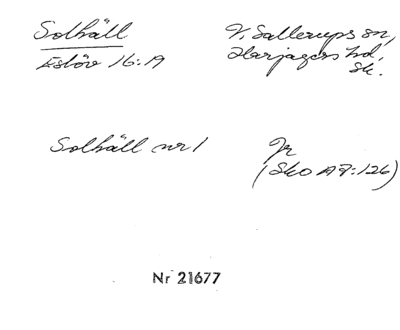 Solhäll
Eslöv 16:19
V. Sallerups sn,
Harjagers hd,
Sk.
Solhäll nr 1
Jr
(Sko A9:126)
Nr 21677